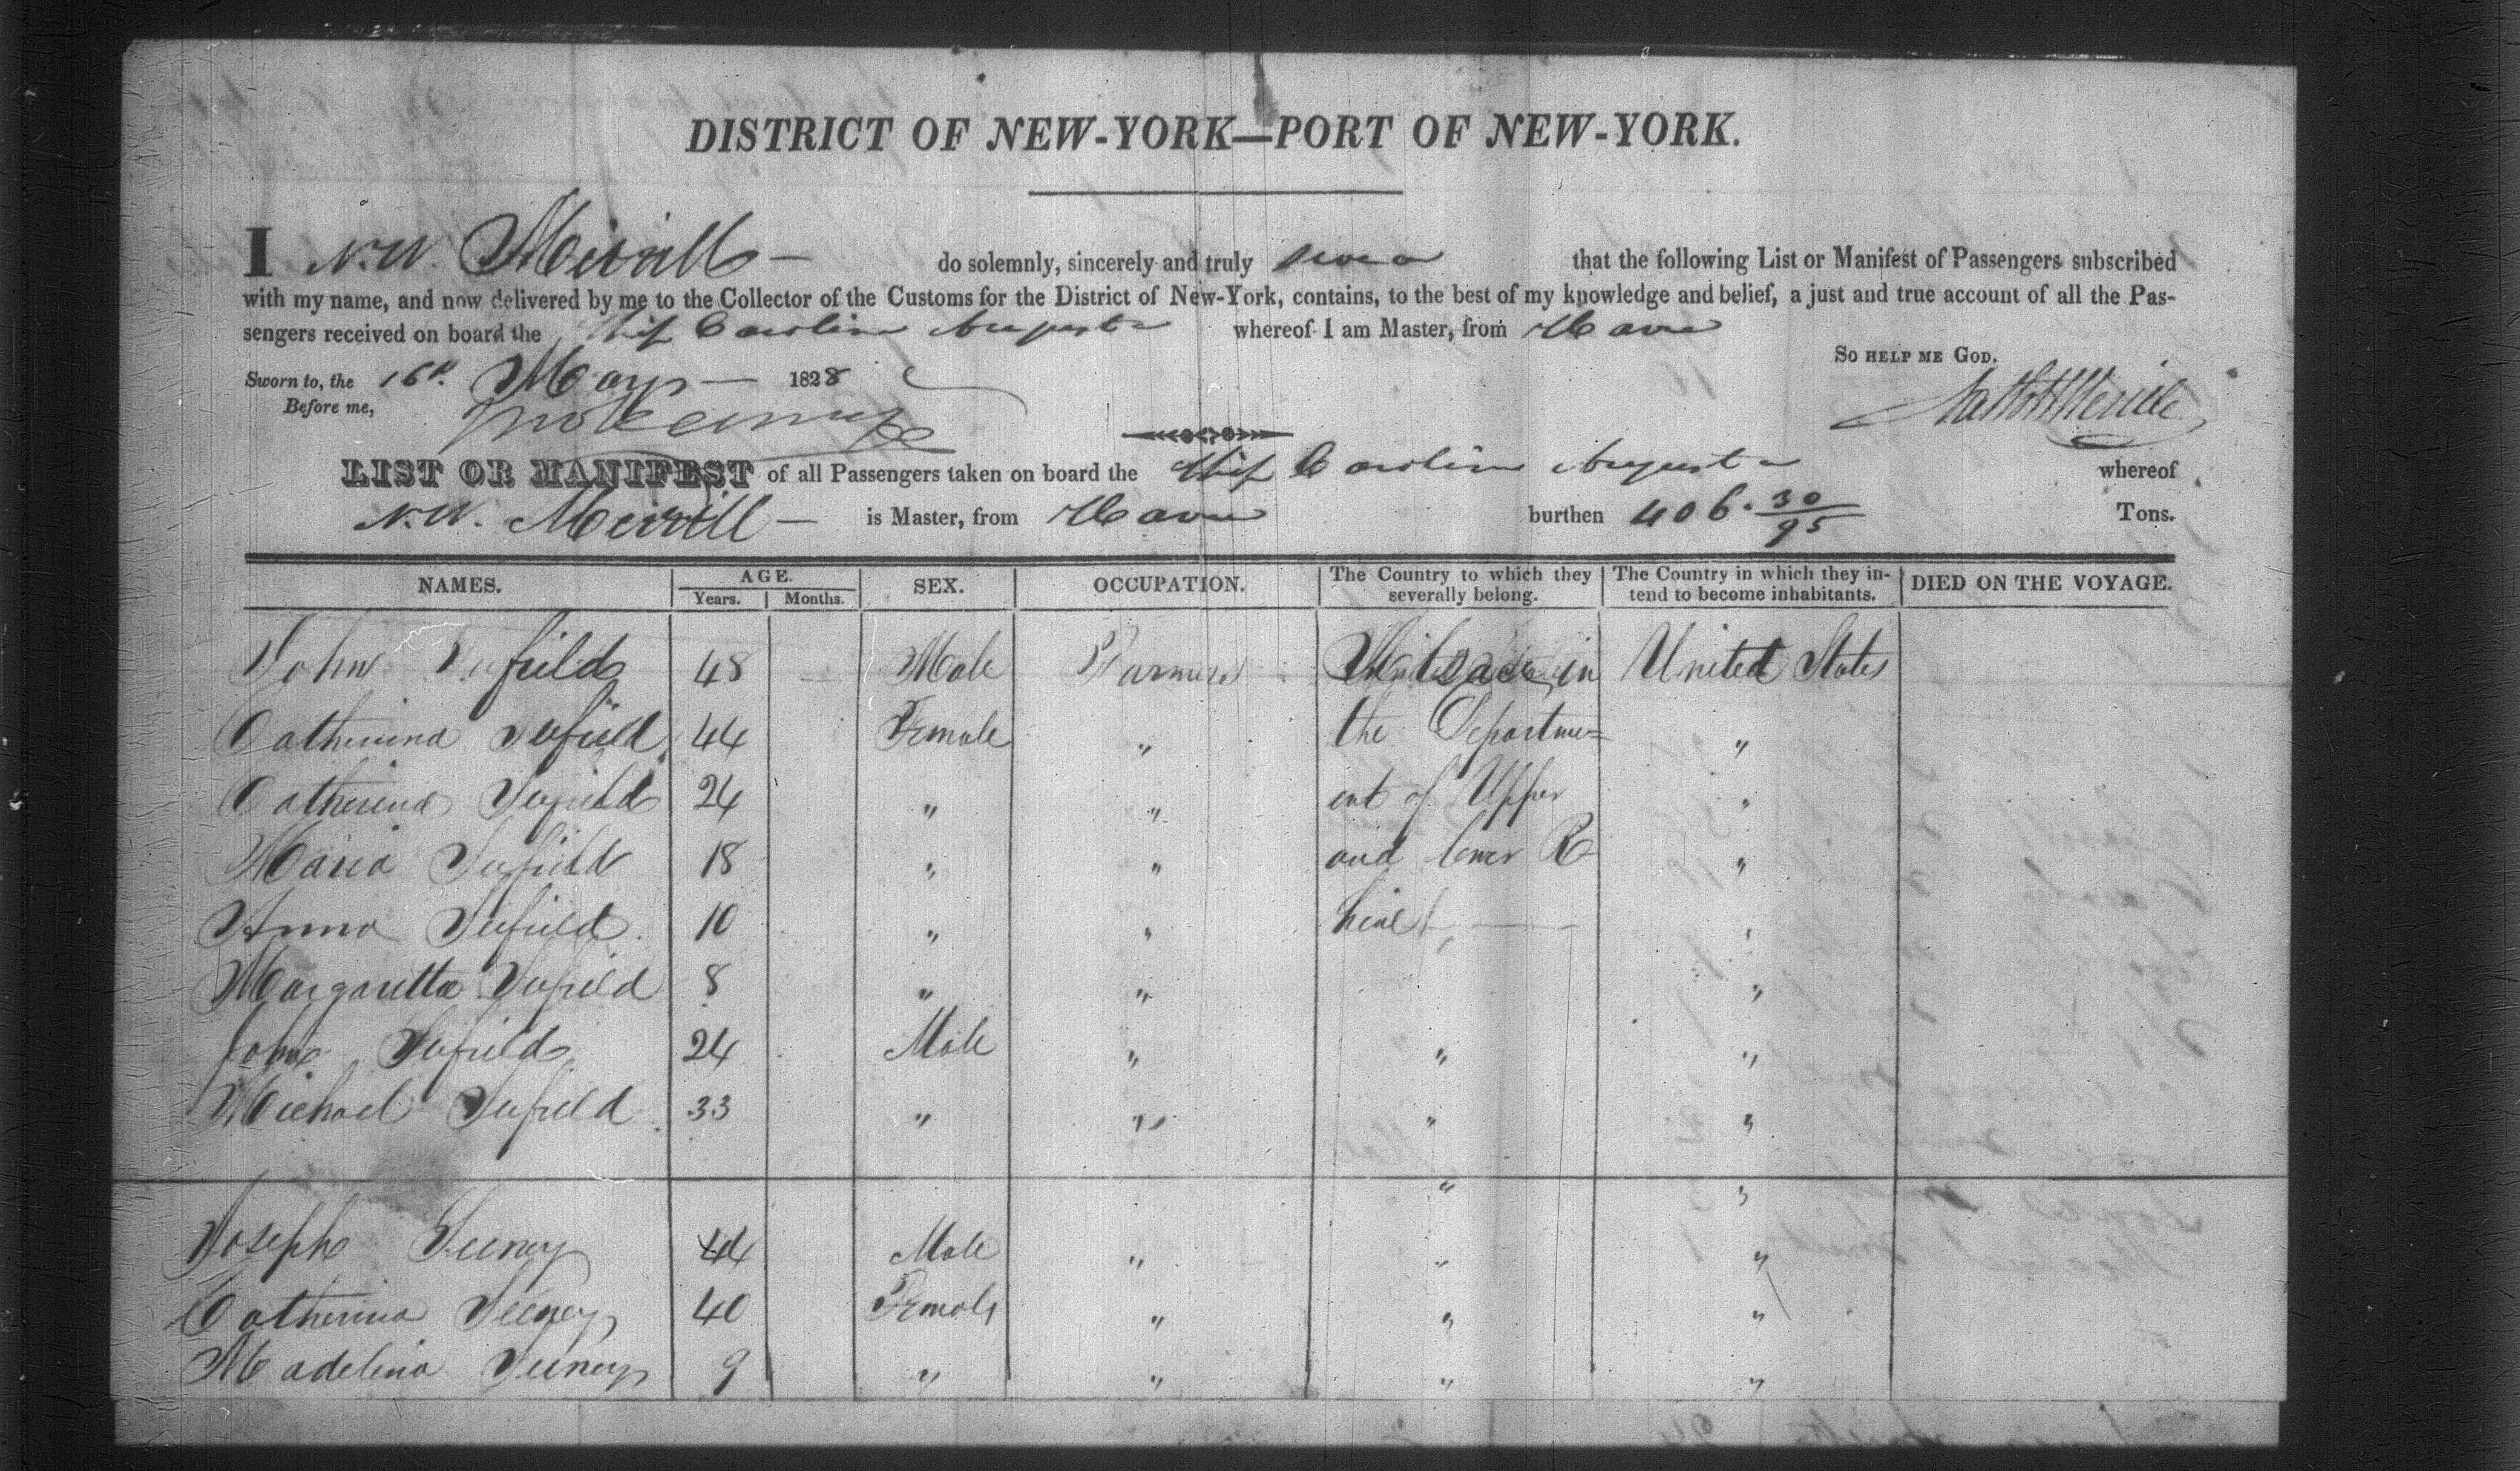 DISTRICT OF NEW-YORK—PORT OF NEW-YORK.
I N.W. Merrill — do solemnly, sincerely and truly swear that the following List or Manifest of Passengers subscribed
with my name, and now delivered by me to the Collector of the Customs for the District of New-York, contains, to the best of my knowledge and belief, a just and true account of all the Pas-
sengers received on board the Ship Caroline Augusta whereof I am Master, from Havre
SO HELP ME GOD.
Sworn to, the 16th May — 1828
Before me,
LIST OR MANIFEST of all Passengers taken on board the Ship Caroline Augusta whereof
N.W. Merrill — is Master, from Havre burthen 406 30/95 Tons.
NAMES. AGE. Years. Months. SEX. OCCUPATION. The Country to which they severally belong. The Country in which they in-tend to become inhabitants. DIED ON THE VOYAGE.
John 48 Male Farmer in United States
Catherina Sufield 44 Female " the Departme= "
Catherina Sufield 24 " " ent of Upper "
Maria Sufield 18 " " and lower R "
Anna Sufield 10 " " "
Margaretta Sufield 8 " " "
John Sufield 24 Male " " "
Michael Sufield 33 " " " "
" "
Joseph 44 Male " " "
Catherina 40 Female " " "
Madelina 9 " " " "